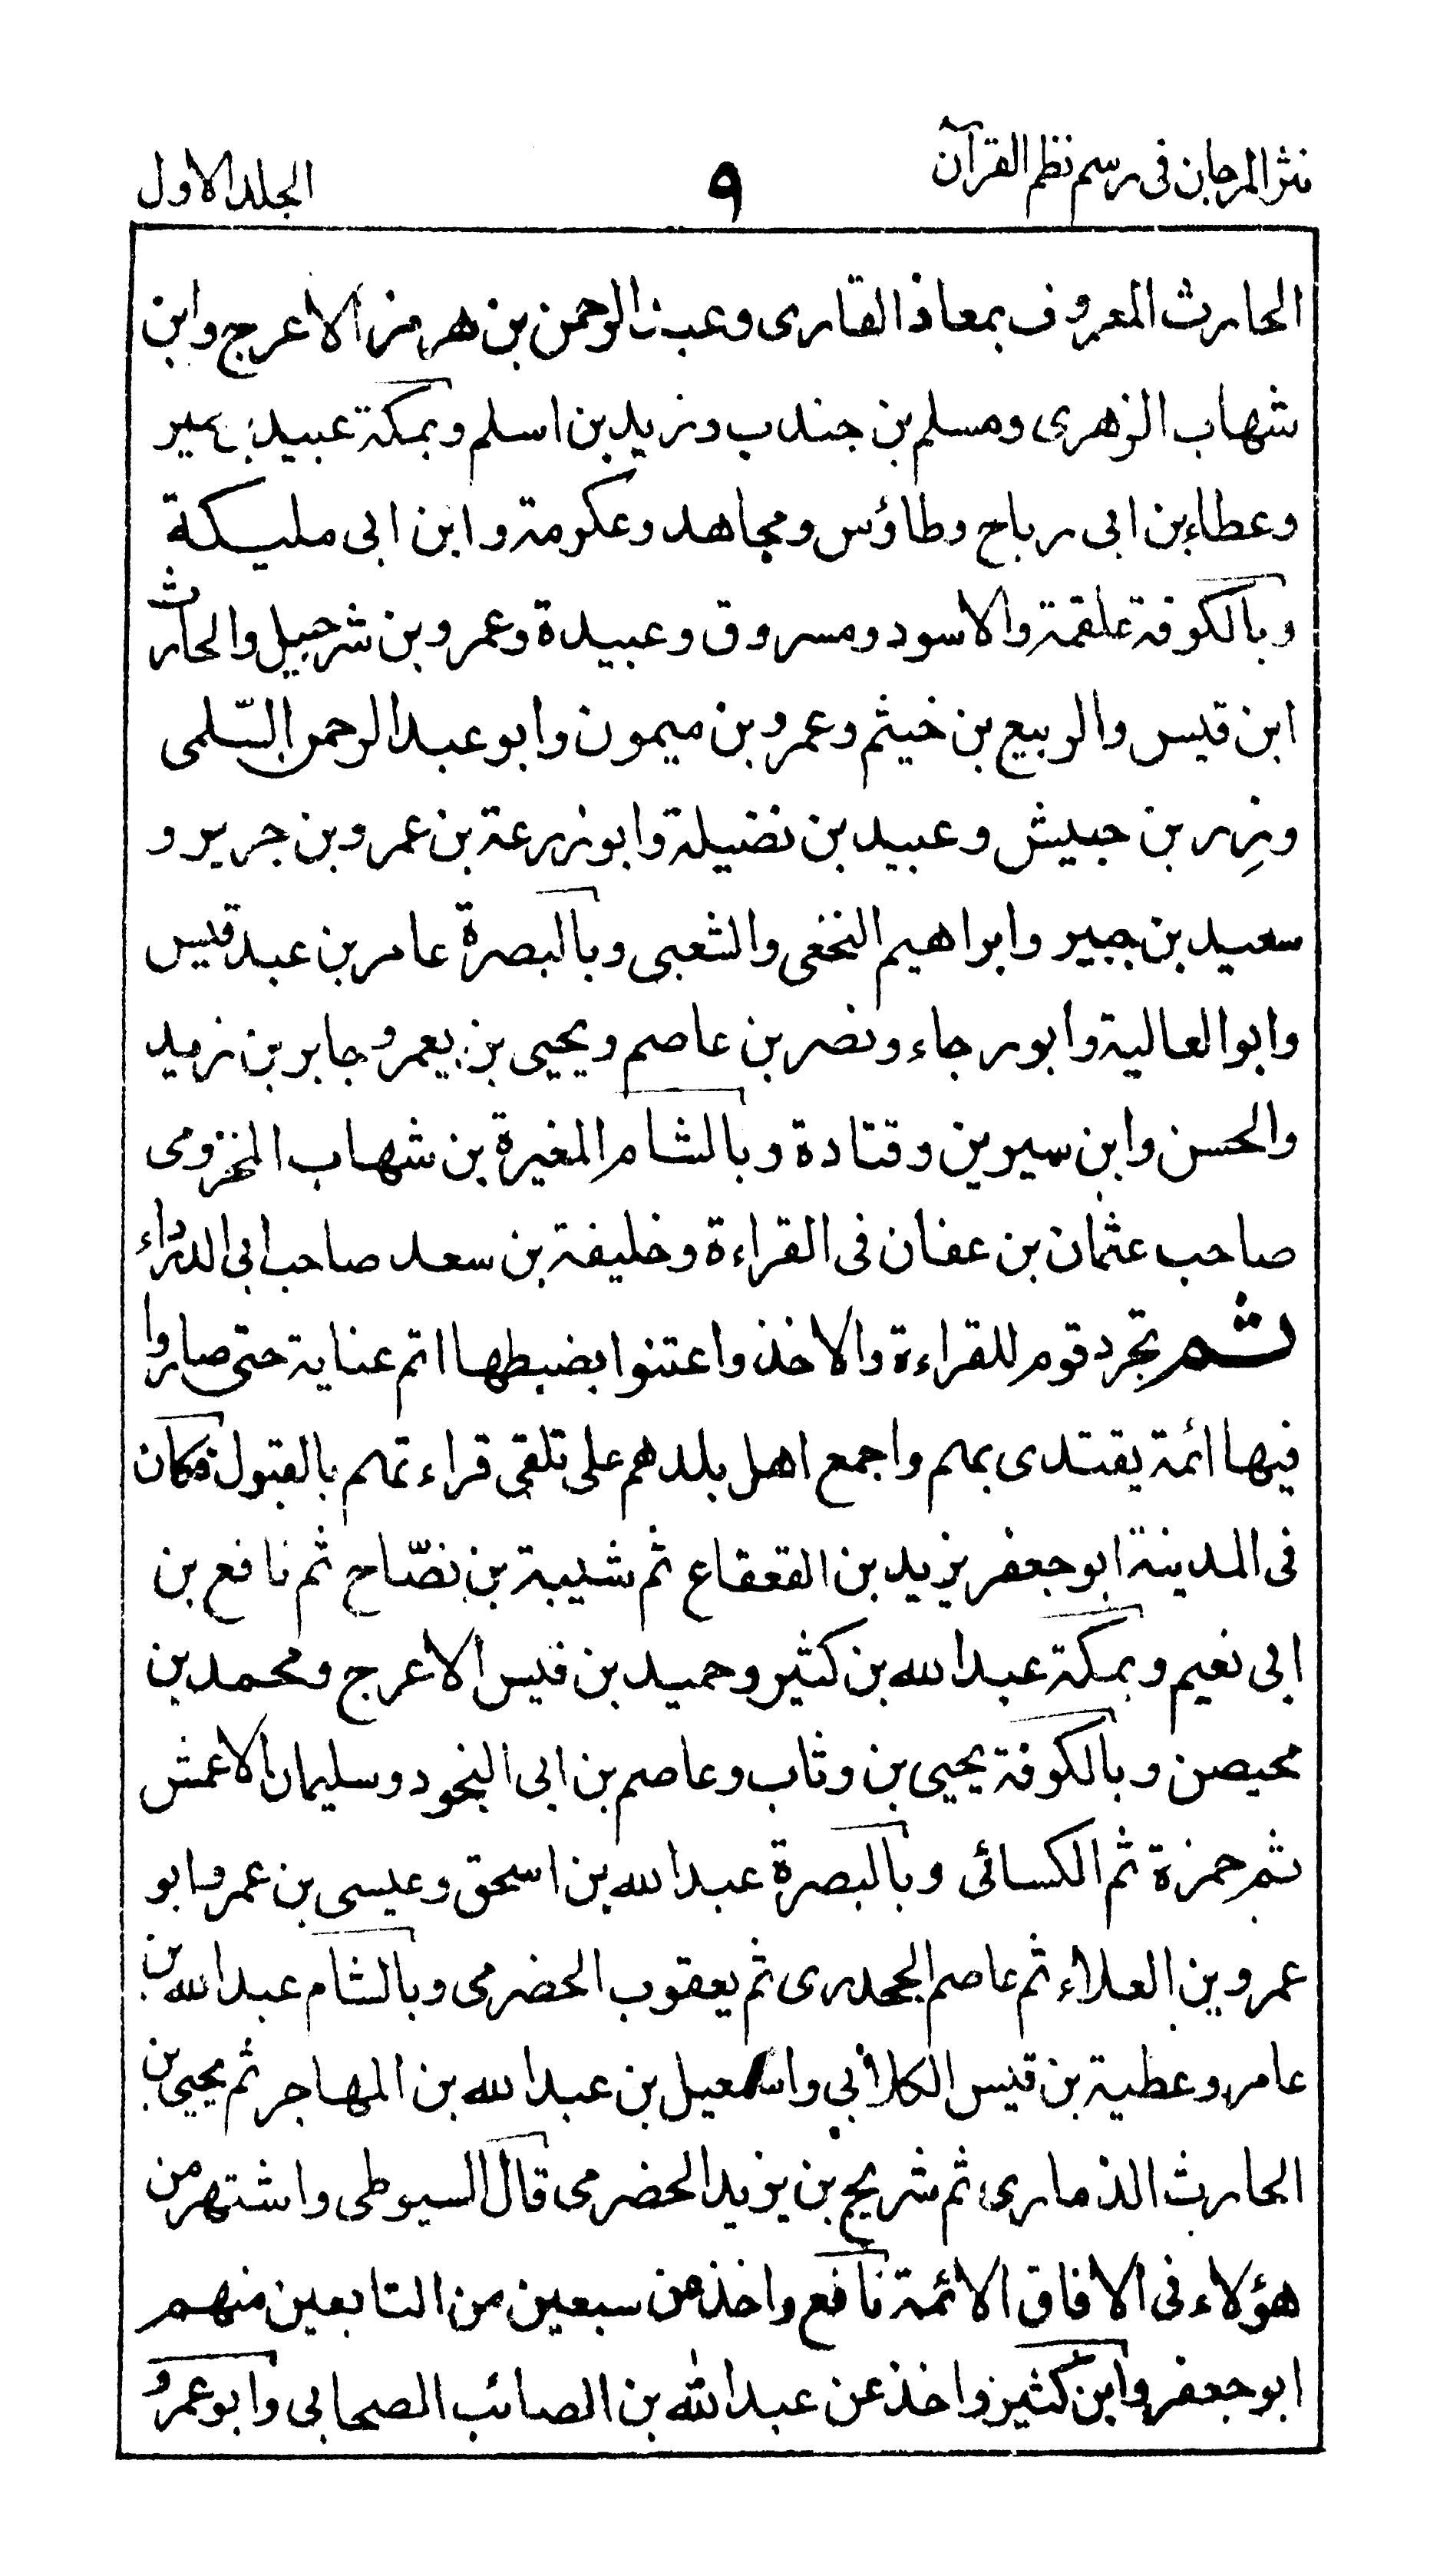 نثر المرجان فى رسم نظم القرآن
٩
الجلد الاول
الحارث المعروف بمعاذ القارى وعبد الرحمن بن هرمز الاعرج وابن
شهاب الزهرى ومسلم بن جندب وزيد بن اسلم وبمكة عبيد بن عمير
وعطاء بن ابى رباح وطاؤس ومجاهد وعكرمة وابن ابى مليكة
وبالكوفة علقمة والاسود ومسروق وعبيدة وعمرو بن شرحبيل والحارث
ابن قيس والربيع بن خيثم وعمرو بن ميمون وابو عبد الرحمن السّلمى
وزِر بن حبيش وعبيد بن نضيلة وابو زرعة بن عمرو بن جرير و
سعيد بن جبير وابراهيم النخعى والشعبى وبالبصرة عامر بن عبد قيس
وابو العالية وابو رجاء ونصر بن عاصم ويحيى بن يعمر وجابر بن زيد
والحسن وابن سيرين وقتادة وبالشام المغيرة بن شهاب المخزومى
صاحب عثمان بن عفان فى القراءة وخليفة بن سعد صاحب ابى الدرداء
ثم تجرد قوم للقراءة والاخذ واعتنوا بضبطها اتم عناية حتى صاروا
فيها ائمة يقتدى بهم واجمع اهل بلدهم على تلقى قراءتهم بالقبول فكان
فى المدينة ابو جعفر يزيد بن القعقاع ثم شيبة بن نصّاح ثم نافع بن
ابى نعيم وبمكة عبد الله بن كثير وحميد بن قيس الاعرج ومحمد بن
محيصن وبالكوفة يحيى بن وثاب وعاصم بن ابى النجود وسليمان الاعمش
ثم حمزة ثم الكسائى وبالبصرة عبد الله بن اسحق وعيسى بن عمر وابو
عمرو بن العلاء ثم عاصم الجحدرى ثم يعقوب الحضرمى وبالشام عبد الله بن
عامر وعطية بن قيس الكلابي واسمعيل بن عبد الله بن المهاجر ثم يحيى بن
الحارث الذمارى ثم شريح بن يزيد الحضرمى قال السيوطى واشتهر من
هؤلاء فى الافاق الائمة نافع واخذ من سبعين من التابعين منهم
ابو جعفر وابن كثير واخذ عن عبد الله بن الصائب الصحابى وابو عمرو